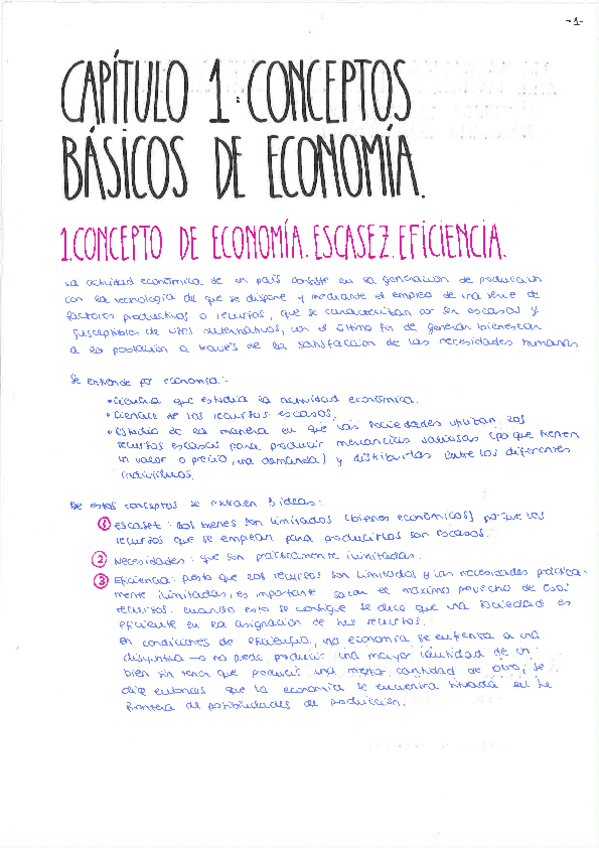 -1-
CAPÍTULO 1: CONCEPTOS
BÁSICOS DE ECONOMÍA.
1. CONCEPTO DE ECONOMÍA. ESCASEZ. EFICIENCIA.
La actividad económica de un país consiste en la generación de producción
con la tecnología de que se dispone y mediante el empleo de una serie de
factores productivos o recursos, que se caracterizan por ser escasos y
susceptibles de usos alternativos, con el último fin de generar bienestar
a la población a través de la satisfacción de las necesidades humanas
Se entiende por economía:
• Ciencia que estudia la actividad económica.
• Ciencia de los recursos escasos.
• Estudio de la manera en que las sociedades utilizan los
recursos escasos para producir mercancías valiosas (porque tienen
un valor o precio, una demanda) y distribuirlas entre los diferentes
individuos.
De estos conceptos se extraen 3 ideas:
① Escasez: los bienes son limitados (bienes económicos) porque los
recursos que se emplean para producirlos son escasos.
② Necesidades: que son prácticamente ilimitadas.
③ Eficiencia: puesto que los recursos son limitados y las necesidades práctica-
mente ilimitadas, es importante sacar el máximo provecho de esos
recursos. Cuando esto se consigue se dice que una sociedad es
eficiente en la asignación de sus recursos.
En condiciones de eficiencia, una economía se enfrenta a una
disyuntiva → no puede producir una mayor cantidad de un
bien sin tener que producir una menor cantidad de otro, se
dice entonces que la economía se encuentra situada en la
frontera de posibilidades de producción.